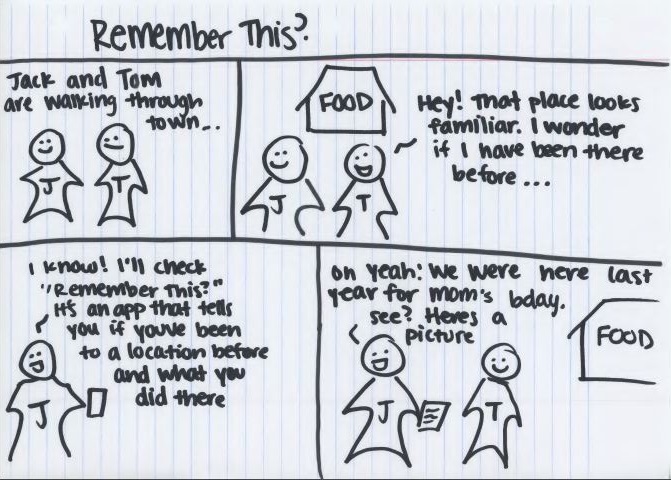 Remember This?
Jack and Tom
are walking through
town...
J
T
FOOD
Hey! That place looks
familiar. I wonder
if I have been there
before...
J
T
I know! I'll check
"Remember This?"
It's an app that tells
you if you've been
to a location before
and what you
did there
J
oh yeah! We were here last
year for mom's bday.
see? Heres a
picture
FOOD
J
T